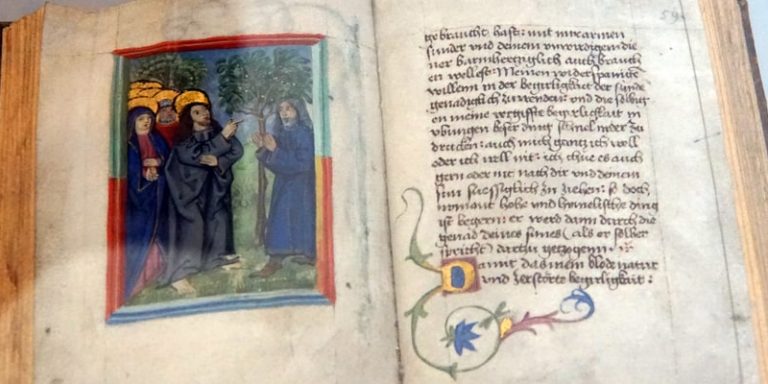 59
gebraucht hast: mit mir armen
sunder vnd deinem vnwirdigen die
ner barmhertziglich auch brauch
en wellest: Meinen widerspanigen
willenn in der begirligkeit der sunde
genadiglich zuwenden: vnd die selbig
en meine vergiffte begirligkeit in
vbungen beser ding schnel nider zu
drucken: auch mich gentzlich woll
oder ich well nit: ich thue es auch
gern oder nit nach dir vnd deinem
sun zu ziehen: so doch
nymant hohe vnd himelische ding
ist begern: er werd dann durch die
genad deines sunes (als er selber
spricht) dartzu getzogenn
Damit das mein blode natur
vnd zerstorte begirligkait: